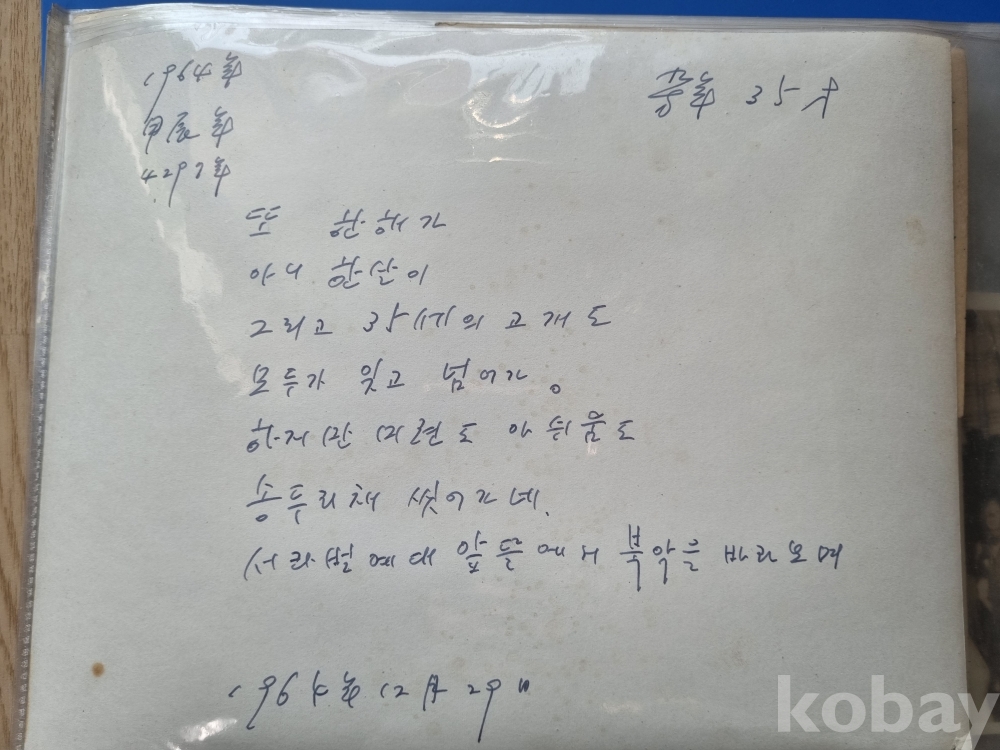 1964年
甲辰年
4297年
年 35才
또 한해가
아니 한살이
그리고 35세의 고개도
모두가 잊고 넘어가。
하지만 미련도 아쉬움도
송두리채 씻어가네.
서라벌예대 앞뜰에서 북악을 바라보며
1964年 12月 29日
kobay